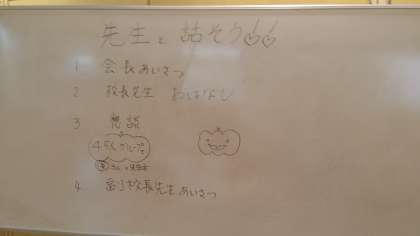 先生と話そう
1 会長あいさつ
2 校長先生 おはなし
3 懇談
4~5人 グループで
4. 副校長先生 あいさつ